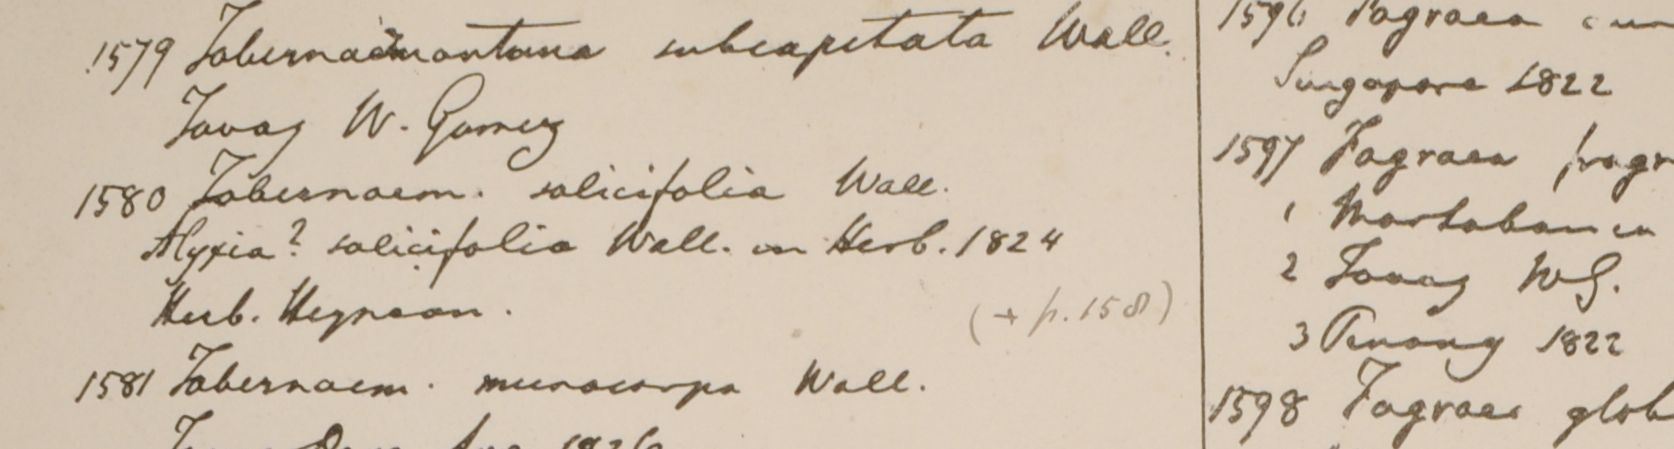 1579 Tabernaemontana subcapitata Wall.
Tavoy W. Gomez
1580 Tabernaem. salicifolia Wall.
Alyxia? salicifolia Wall. in Herb. 1824
Herb. Heynean.
(+ p. 1581)
1581 Tabernaem. microcarpa Wall.
1826
1596 Fagraea
Singapore 1822
1597 Fagraea fragr
1 Martaban
2 Tavoy WG.
3 Penang 1822
1598 Fagraea glob